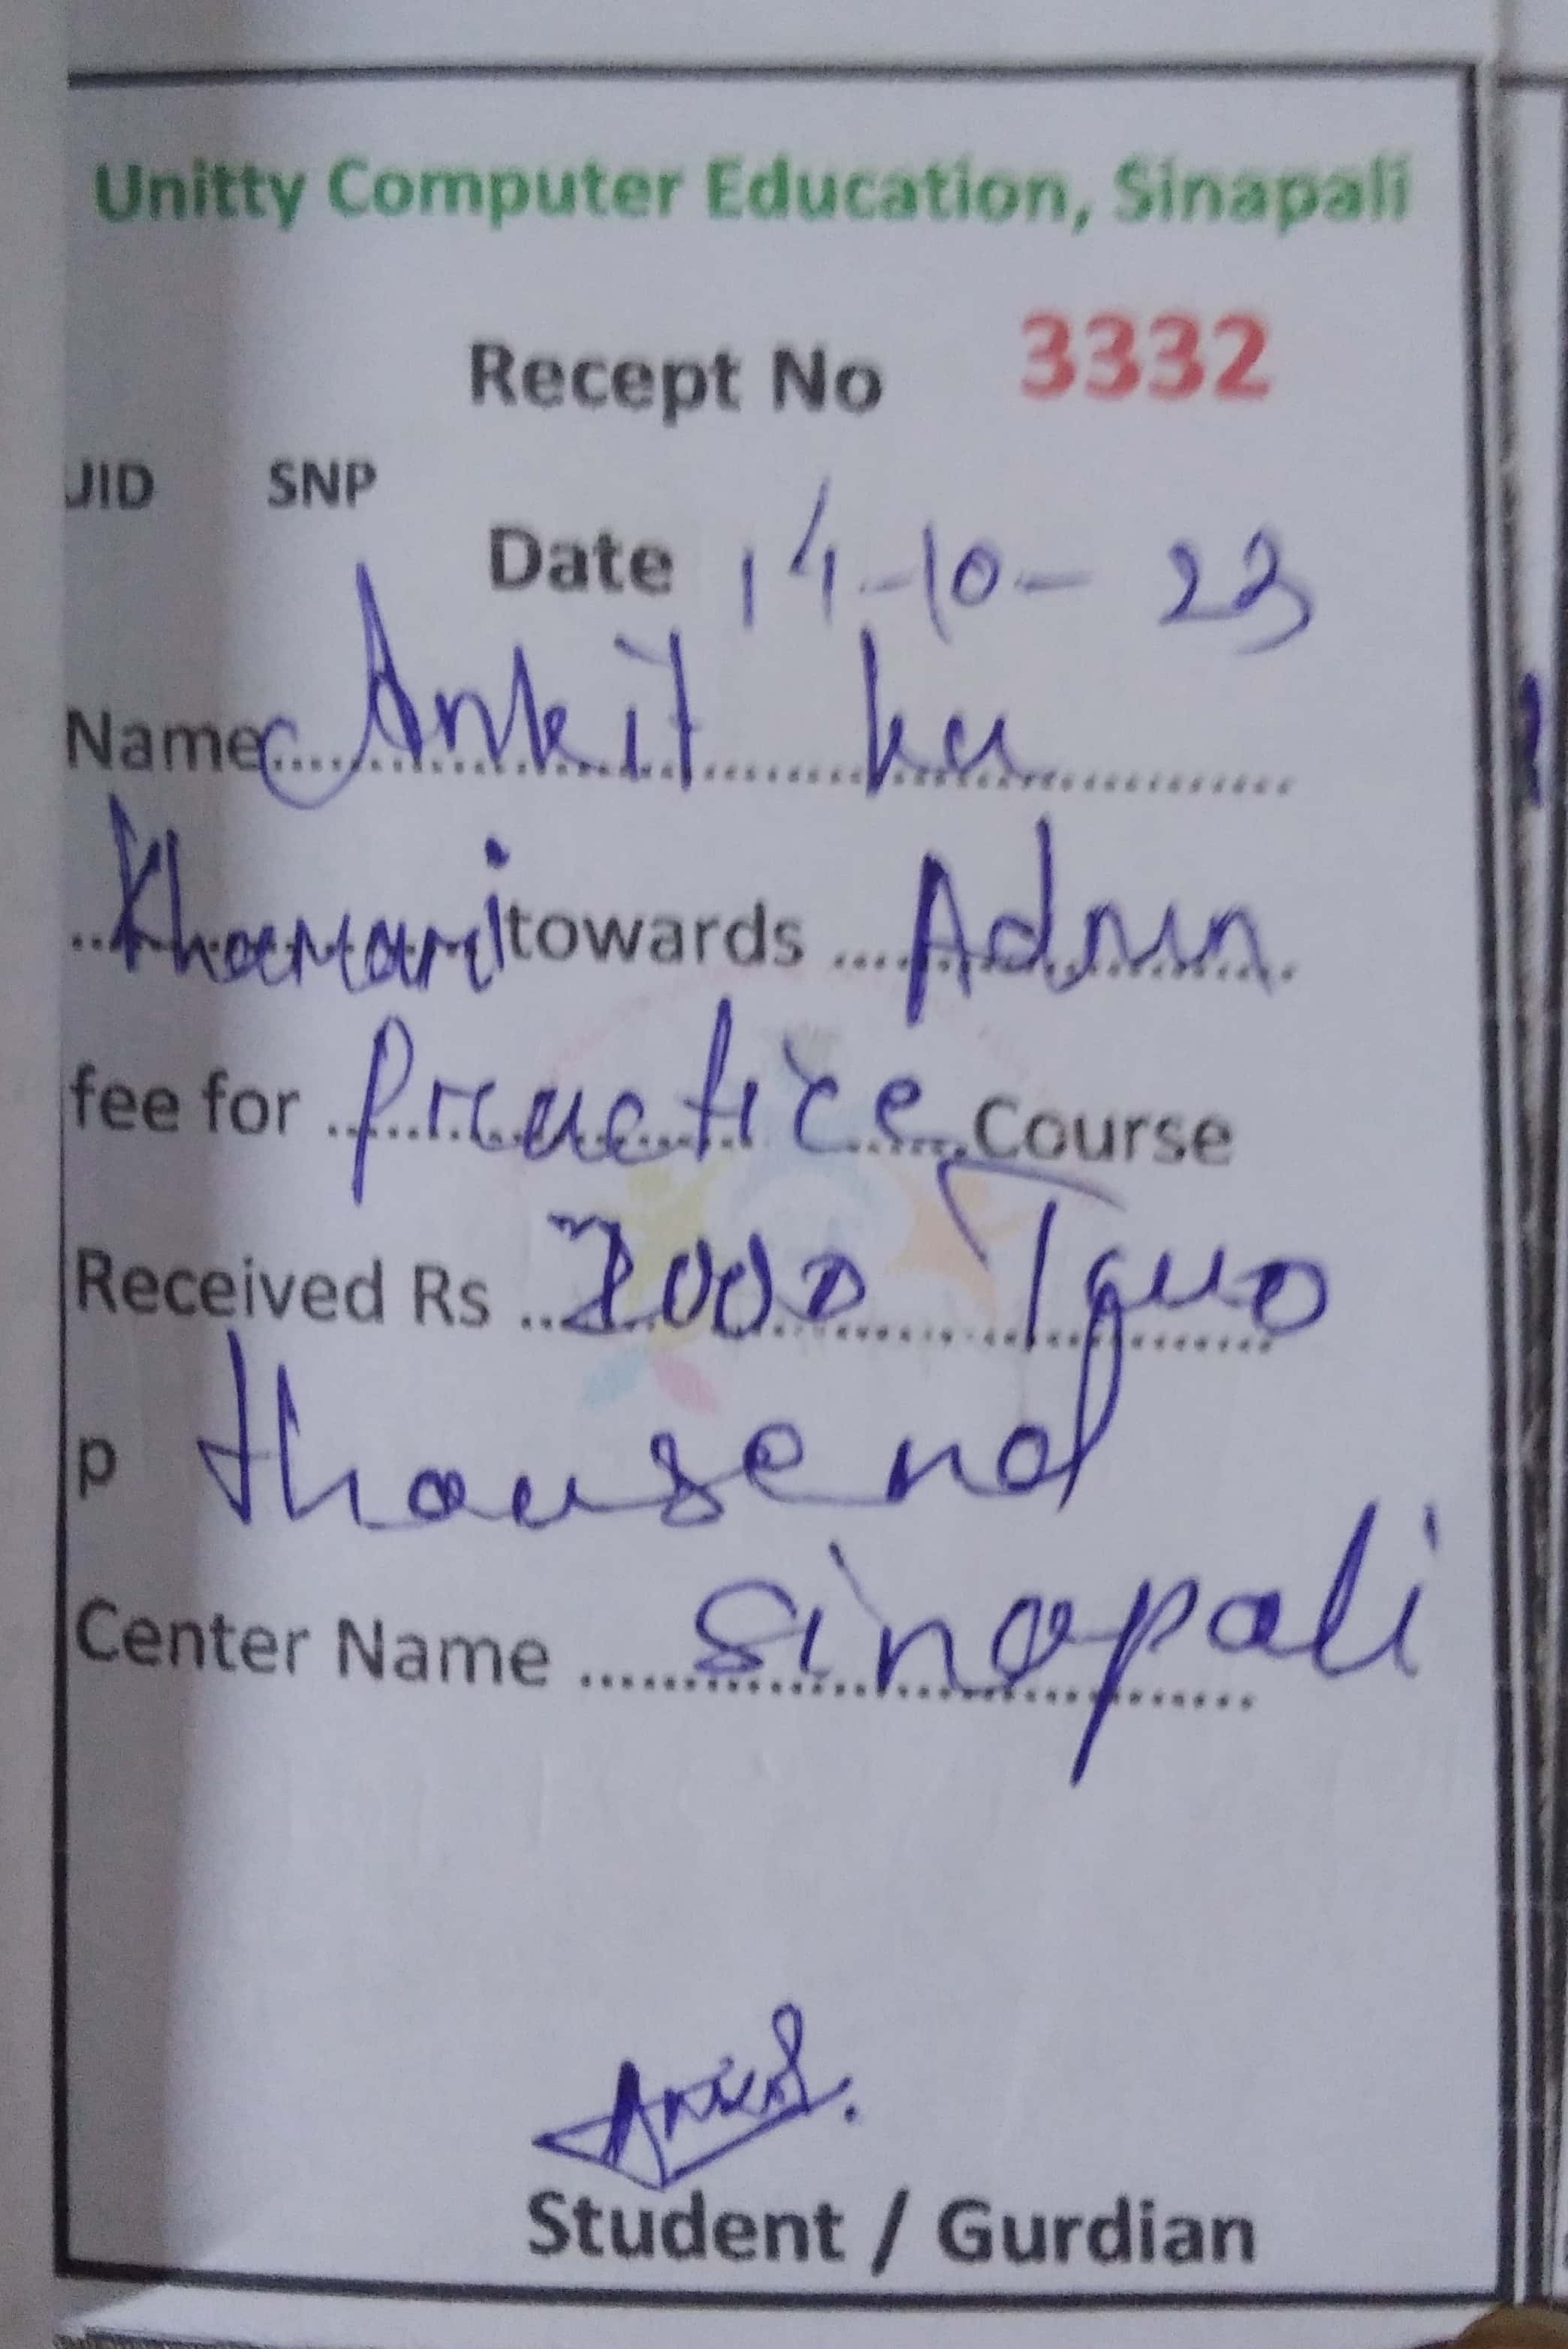 Unitty Computer Education, Sinapali
Recept No 3332
UID SNP
Date 14-10-23
Name Ankit ku
Khamari towards Admn
fee for Practice Course
Received Rs 2000 Two
p thousend
Center Name Sinapali
Ankit.
Student / Gurdian